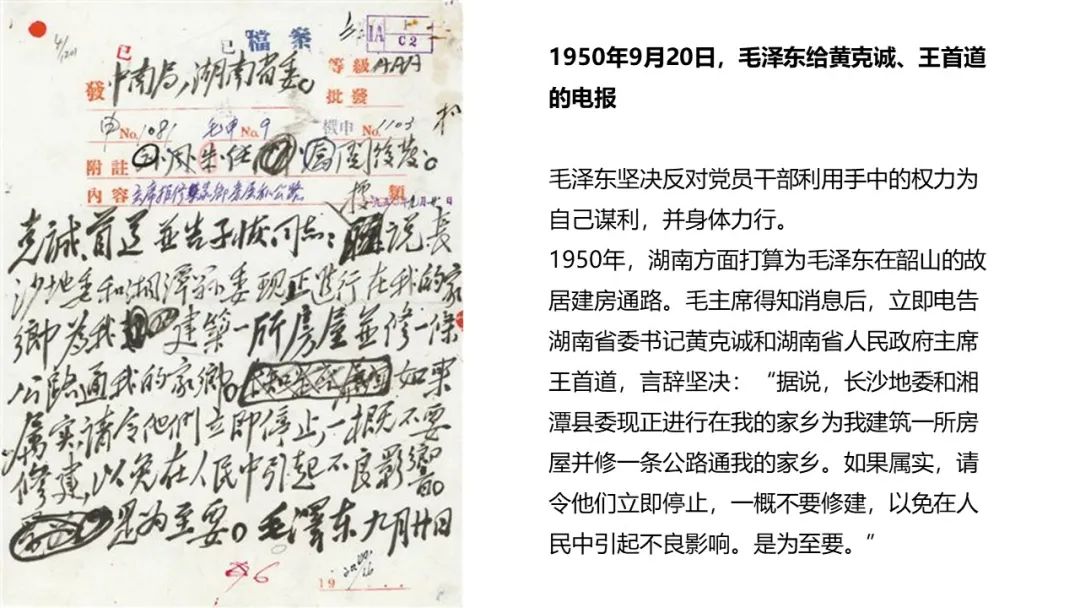 檔案
IA
C2
等級 AAA
發 中南局,湖南省委。
批發
申No.1081 毛申No.9 機申No.1103
附註
內容
類
克誠、首道並告子恢同志:據说長
沙地委和湘潭縣委现正進行在我的家
鄉為我建築一所房屋並修一條
公路通我的家鄉。如果
属实,請令他們立即停止,一概不要
修建,以免在人民中引起不良影響。
是为至要。毛澤東 九月廿日
19
1950年9月20日，毛泽东给黄克诚、王首道
的电报
毛泽东坚决反对党员干部利用手中的权力为
自己谋利，并身体力行。
1950年，湖南方面打算为毛泽东在韶山的故
居建房通路。毛主席得知消息后，立即电告
湖南省委书记黄克诚和湖南省人民政府主席
王首道，言辞坚决：“据说，长沙地委和湘
潭县委现正进行在我的家乡为我建筑一所房
屋并修一条公路通我的家乡。如果属实，请
令他们立即停止，一概不要修建，以免在人
民中引起不良影响。是为至要。”